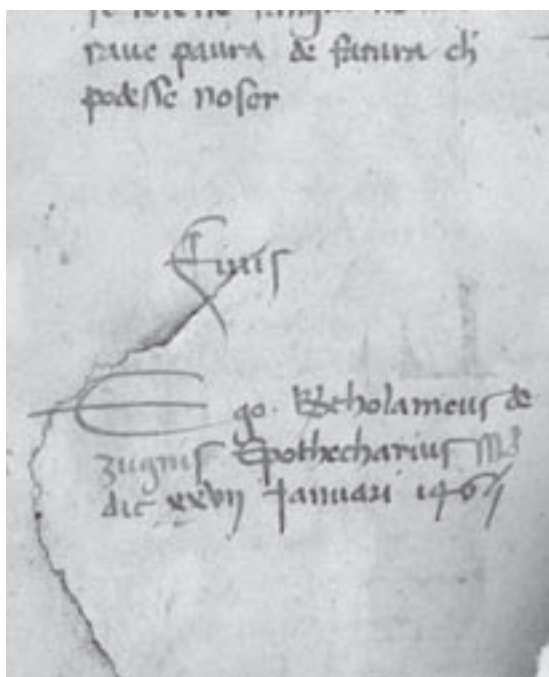 raue paura de fatura ch
podesse noser
Finis
Ego. Betholameus de
zugnis Epothecharius
die xxvij Januari 1467